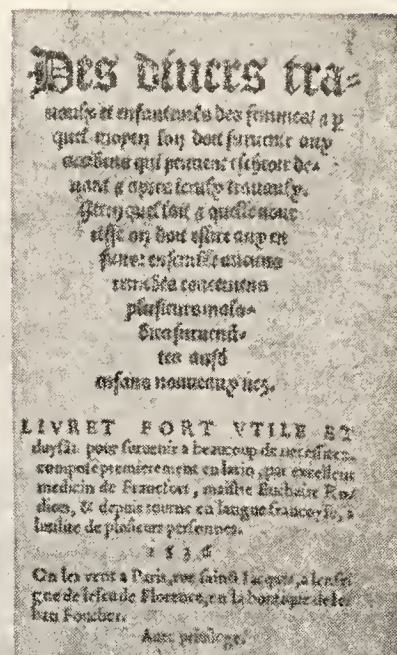 Des diuers tra-
uaulx et enfantemēs des femmes/ a p
quel moyen lon doit suruenir aux
accidens qui peuuent escheoir de-
uant & apres iceulx trauaulx.
Itē quel lait & quelle nour
risse on doit eslire aux en
fans: ensemble aucuns
remedes concernens
plusieurs mala-
dies suruenā-
tes ausd
enfans nouueaux nez.
LIVRET FORT VTILE ET
duysāt pour suruenir a beaucoup de necessites,
composé premierement en latin, par excellent
medicin de Francfort, maistre Euchaire Ro/
dion, & depuis tourne en langue francoyse, a
lutilite de plusieurs personnes.
1536
On les vent a Paris, rue sainct Iacques, a lensei
gne de lescu de Florence, en la boutique de Ie
han Foucher.
Auec priuilege.